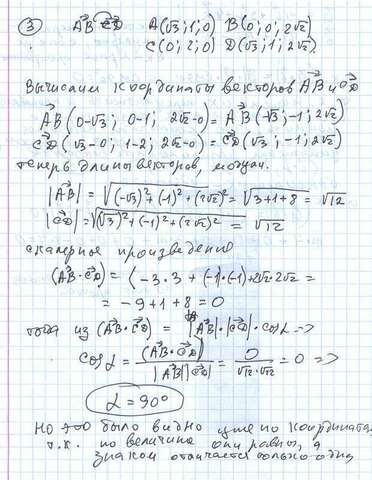 ③ AB CD A(√3;1;0) B(0;0;2√2)
C(0;2;0) D(√3;1;2√2).
Вычислим координаты векторов AB и CD
AB(0-√3; 0-1; 2√2-0) = AB(-√3;-1;2√2)
CD(√3-0; 1-2; 2√2-0) = CD(√3;-1;2√2)
теперь длины векторов, модули.
|AB| = √((-√3)²+(-1)²+(2√2)²) = √3+1+8 = √12
|CD| = √((√3)²+(-1)²+(2√2)²) = √12
скалярное произведение
(AB·CD) = (-3·3+(-1)·(-1)+2√2·2√2 =
= -9+1+8=0
тогда из (AB·CD) = |AB|·|CD|·cosα =>
cosα = (AB·CD) / |AB||CD| = 0 / √12·√12 = 0 =>
α=90°
Но это было видно уже по координатам,
т.к. по величине они равны, а
знаком отличается только одна